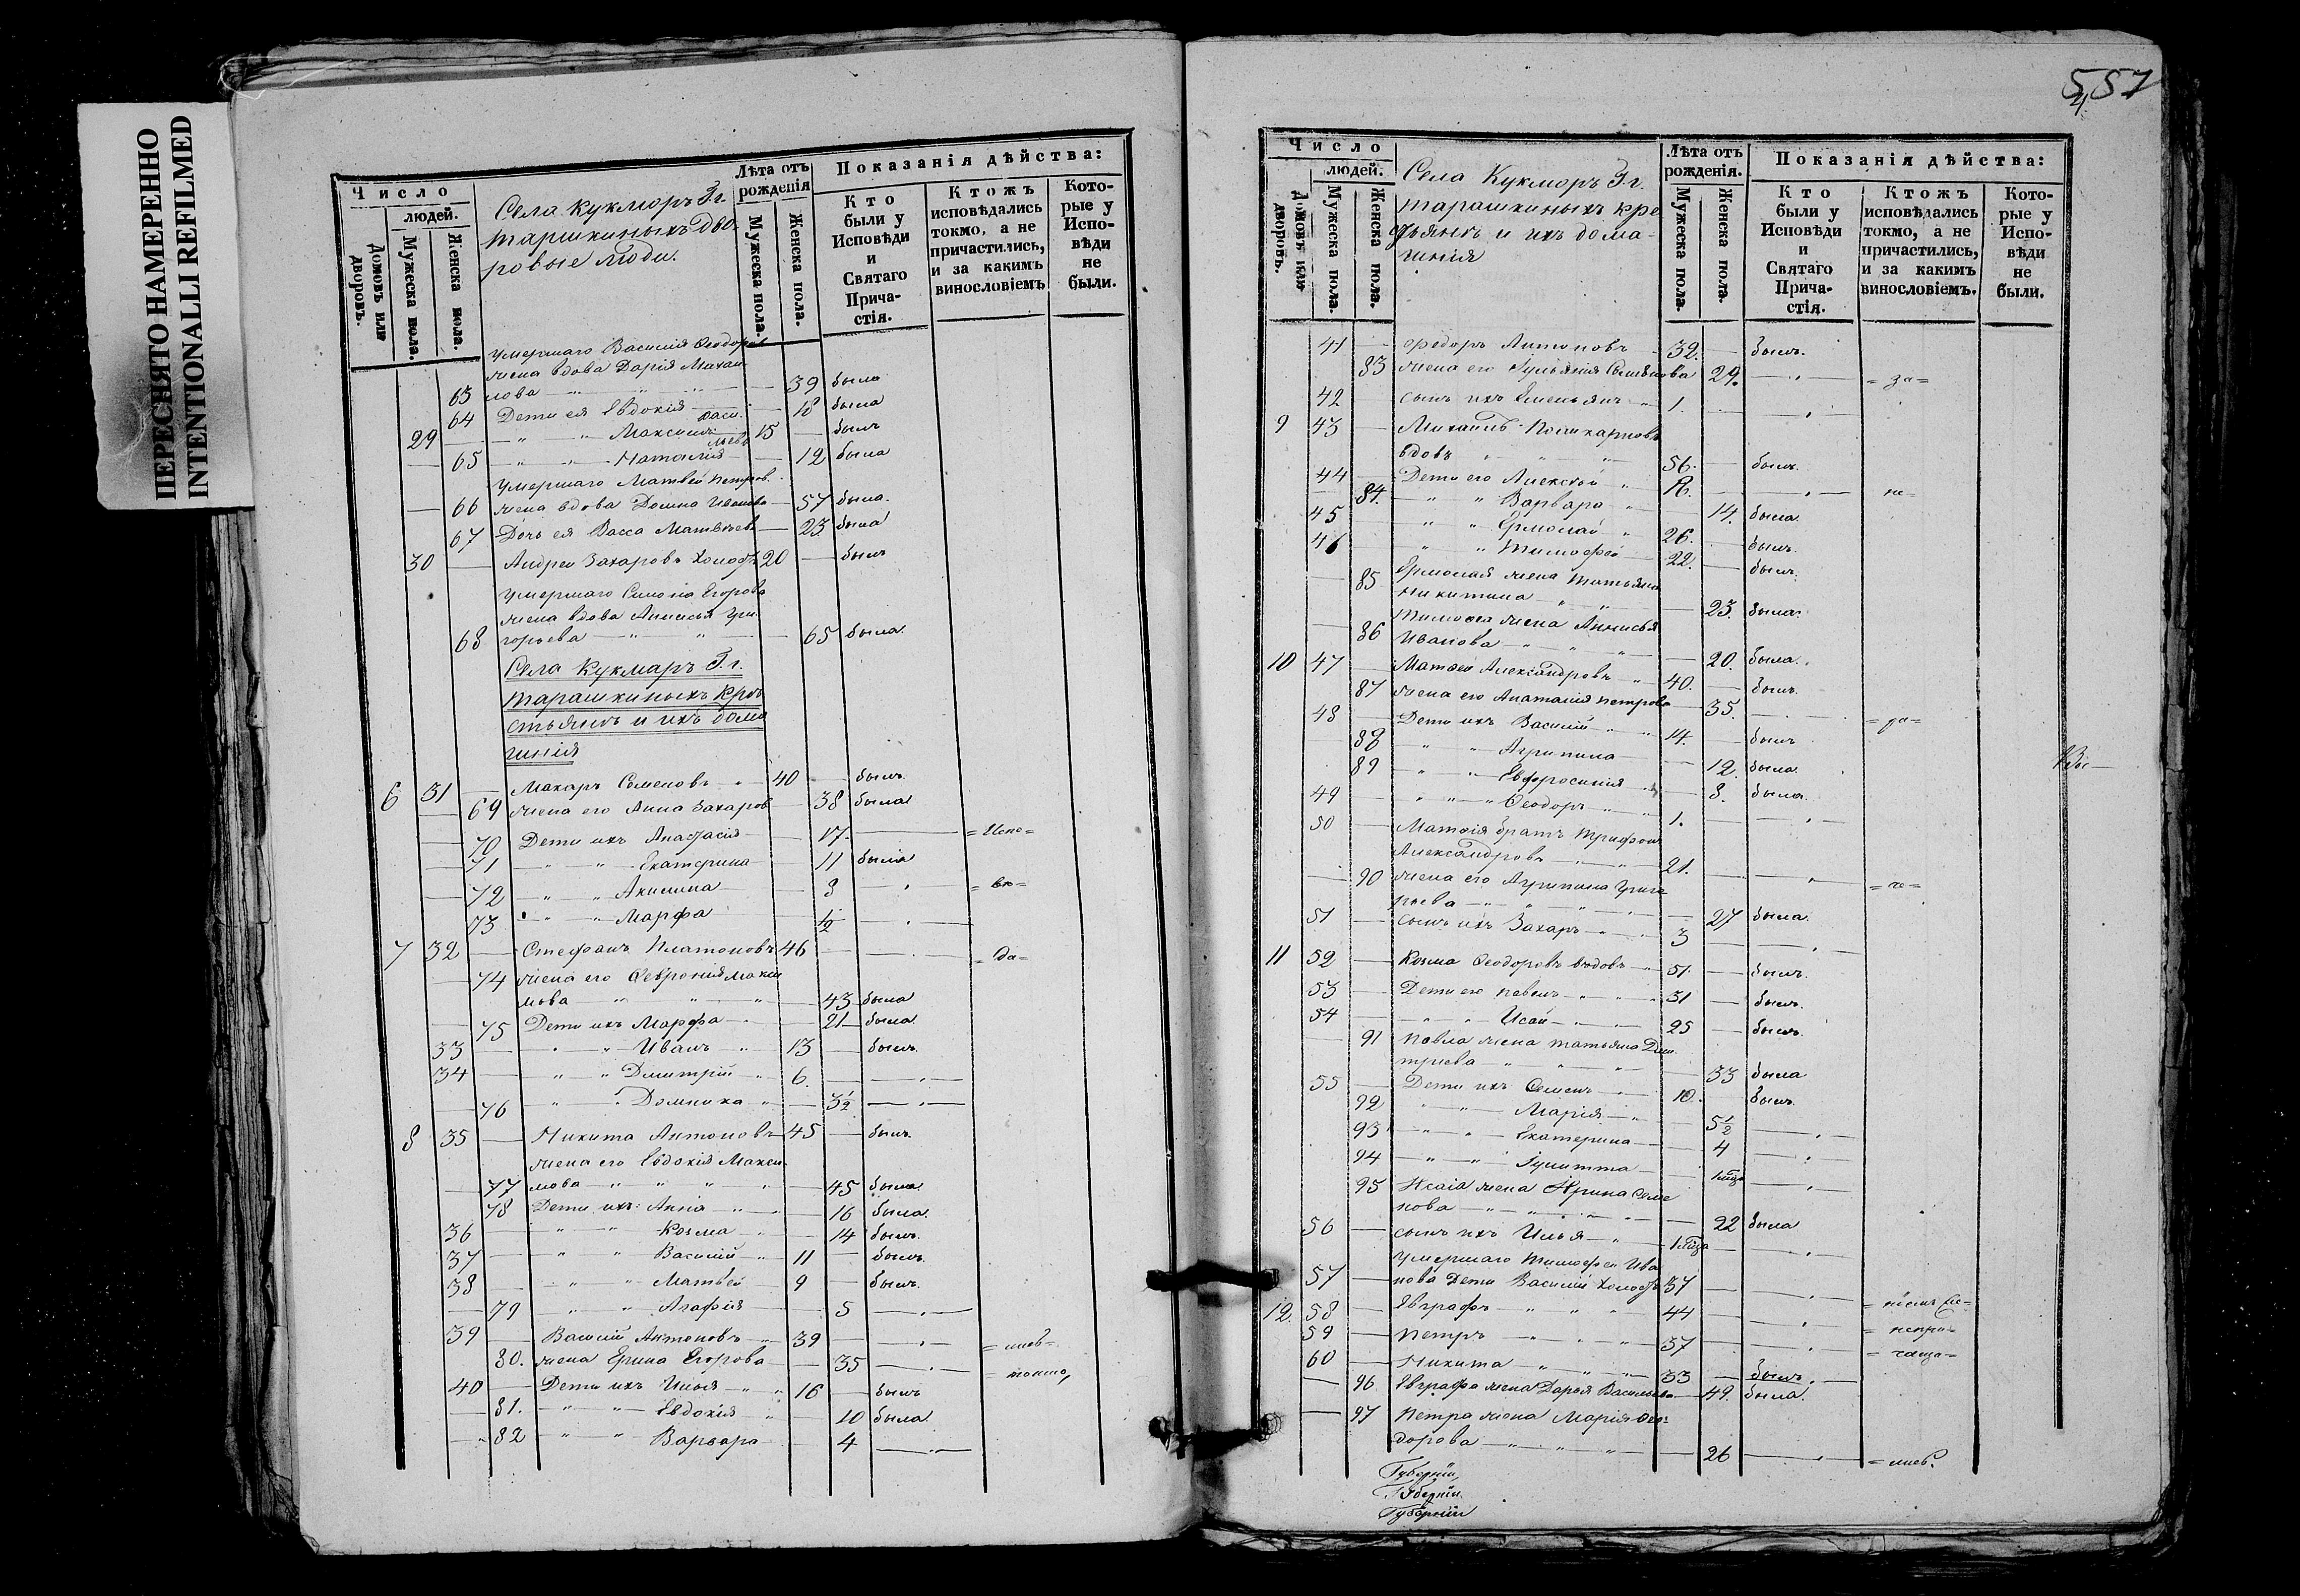 ПЕРЕСНЯТО НАМЕРЕННО
INTENTIONALLI REFILMED
Число
людей.
Домовъ или дворовъ.
Мужеска пола.
Женска пола.
Села Кукморъ Г. г.
тарашкиныхъ дво-
ровые люди.
Лѣта отъ рожденія
Мужеска пола.
Женска пола.
Показанія дѣйства:
Кто были у Исповѣди и Святаго Прича-стія.
Ктожъ исповѣдались токмо, а не причастились, и за какимъ винословіемъ
Кото-рые у Испо-вѣди не были.
умершаго Василія Ѳеодоров
жена вдова Дарія Михаи
63 лова — 39 была
64 Дети ея Евдокія — 18 была
29 — Максимъ Васи льевъ 15 — былъ
— 65 — Наталия — 12 была
умершаго Матвея Петров.
— 66 жена вдова Домна Иванова — 57 была.
67 Дочь ея Васса Матвѣева — 23 была
30 — Андрей Захаровъ холостъ 20 — былъ
умершаго Симона Егорова
жена вдова Анисья Гри
68 горьева — 65 была.
Села Кукмаръ Г. г.
тарашкиныхъ кре
стьянъ и ихъ дома
шнія
6 31 — Макаръ Семеновъ 40 — былъ.
— 69 жена его Анна Захаров — 38 была
— 70 Дети ихъ Анастасія — 17. — =Испо=
— 71 — Екатерина — 11 была
— 72 — Акилина — 8 — =вѣ=
73 — Марфа — 1/2 —
7 32 — Стефанъ Платоновъ 46 — =да=
— 74 жена его Ѳеврония Макси
мова — 43 была
— 75 Дети ихъ Марфа — 21 была.
33 — Иванъ 13 — былъ.
34 — Димитрій 6. —
— 76 — Домника — 3 1/2 —
8 35 — Никита Антоновъ 45 — былъ.
жена его Евдокія Макси
— 77 мова — 45 была.
78 Дети ихъ: Анна — 16 была.
36 — Козма — 14 былъ.
37 — Василий 11 — былъ.
38 — Матвей 9 — былъ.
— 79 — Агафия — 5 —
39 — Василий Антоновъ 39 —
80. жена Ерина Егорова — 35 —
40 — Дети ихъ Илья 16 — былъ
— 81. — Евдокия — 10 была.
82 — Варвара — 4 —
557
Число
людей.
Домовъ или дворовъ.
Мужеска пола.
Женска пола.
Села Кукморъ Г. г.
тарашкиныхъ кре
стьянъ и ихъ дома-
шнія
Лѣта отъ рожденія.
Мужеска пола.
Женска пола.
Показанія дѣйства:
Кто были у Исповѣди и Святаго Прича-стія.
Ктожъ исповѣдались токмо, а не причастились, и за какимъ винословіемъ.
Кото-рые у Испо-вѣди не были.
41 — Федоръ Антоновъ 32. — былъ.
83 жена его Іульянія Семенова 29. — =за=
42 сынъ ихъ Емельянъ 1. —
9 43 — Михаилъ Поликарповъ
вдовъ 56. — былъ.
44 — Дети его Алексей —
— 84. — Варвара — 14. была.
45 — Ермолай 26. — былъ.
46 — Тимофей 22. — былъ.
— 85 Ермолая жена Татьяна
Никитина — 23. была.
Тимофея жена Анисья
— 86 Иванова — 20. была.
10 47 — Матвей Александровъ 40. — былъ.
87 жена его Анастасія Петрова — 35. —
48 — Дети ихъ Василий 14. — былъ
88 — Агрипина — 12. была.
89 — Евфросиния — 8. была.
49 — Ѳеодоръ 1. —
50 — Матвія братъ Трифонъ
Александровъ 21. —
— 90 жена его Агрипина Григо
рьева — 27 была.
51 — сынъ ихъ Захаръ 3 —
11 52 — Козма Ѳеодоровъ вдовъ 51. — былъ.
53 — Дети его Павелъ 31 — былъ.
54 — Исай 25 — былъ.
— 91 Павла жена Татьяна Дми
триева — 33 была
55 — Дети ихъ Семенъ 10. — былъ.
92 — Марія — 5 1/2 —
93 — Екатерина — 4 —
94 — Іулитта —
95 Исаія жена Ирина Семе
нова — 22 была
56 — сынъ ихъ Илья —
умершаго Тимофея Ива
57 — нова Дети Василий холостъ 37 —
12. 58 — Евграфъ 44 —
59 — Петръ 37 —
60 — Никита 33 — былъ.
— 96 Евграфа жена Дарья Васильева — 49. была.
— 97 Петра жена Марія Ѳео-
дорова — 26 —
Губерніи,
Губерніи
Губерніи